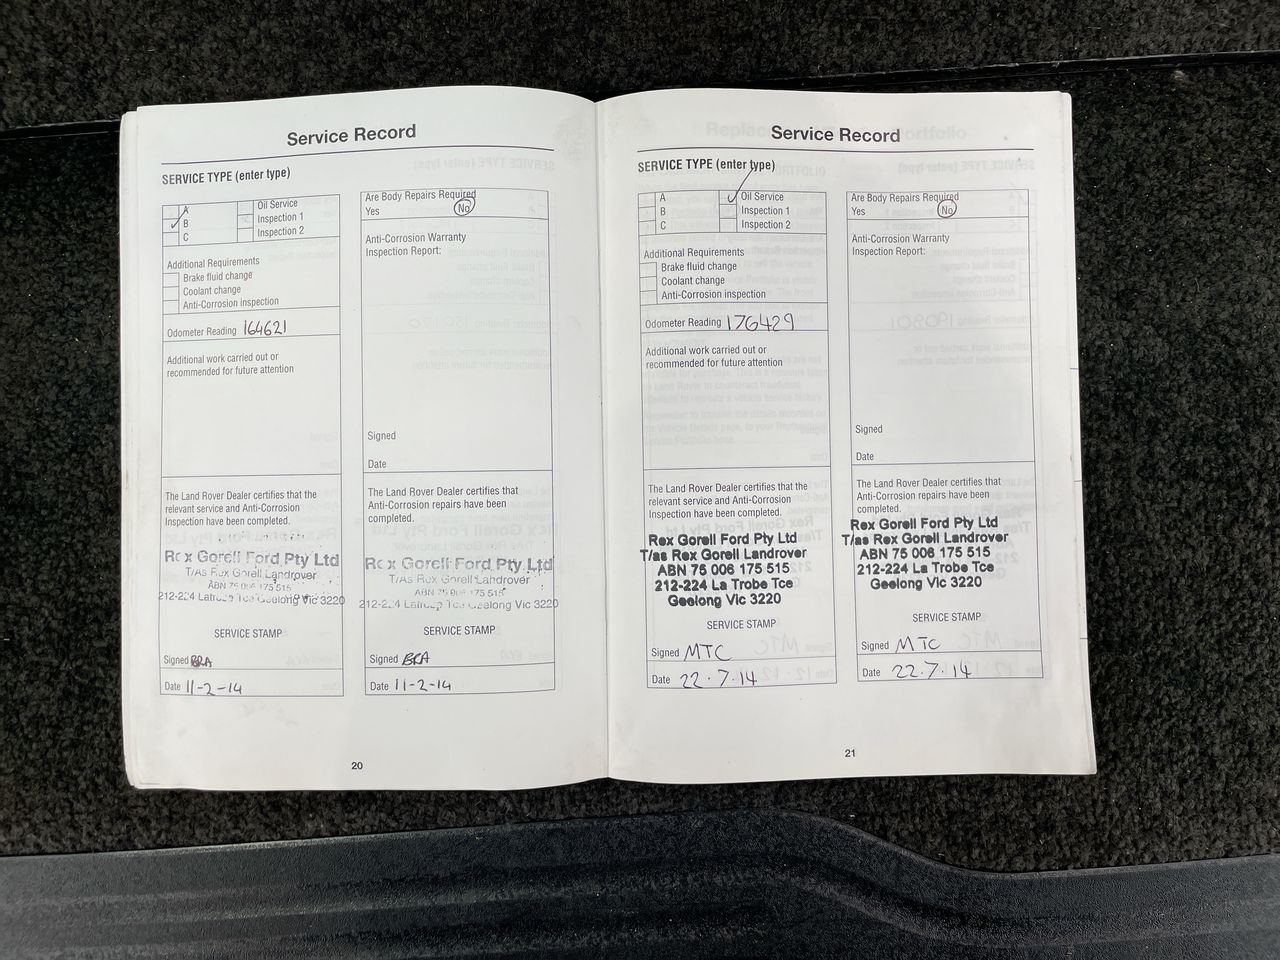 Service Record
SERVICE TYPE (enter type)
A
B
C
Oil Service
Inspection 1
Inspection 2
Additional Requirements
Brake fluid change
Coolant change
Anti-Corrosion inspection
Odometer Reading 164621
Additional work carried out or
recommended for future attention
The Land Rover Dealer certifies that the
relevant service and Anti-Corrosion
Inspection have been completed.
Rex Gorell Ford Pty Ltd
T/As Rex Gorell Landrover
ABN 75 006 175 515
212-224 Latrobe Tce Geelong Vic 3220
SERVICE STAMP
Signed BRA
Date 11-2-14
Are Body Repairs Required
Yes No
Anti-Corrosion Warranty
Inspection Report:
Signed
Date
The Land Rover Dealer certifies that
Anti-Corrosion repairs have been
completed.
Rex Gorell Ford Pty Ltd
T/As Rex Gorell Landrover
ABN 75 006 175 515
212-224 Latrobe Tce Geelong Vic 3220
SERVICE STAMP
Signed BRA
Date 11-2-14
20
Service Record
SERVICE TYPE (enter type)
A
B
C
Oil Service
Inspection 1
Inspection 2
Additional Requirements
Brake fluid change
Coolant change
Anti-Corrosion inspection
Odometer Reading 176429
Additional work carried out or
recommended for future attention
The Land Rover Dealer certifies that the
relevant service and Anti-Corrosion
Inspection have been completed.
Rex Gorell Ford Pty Ltd
T/as Rex Gorell Landrover
ABN 75 006 175 515
212-224 La Trobe Tce
Geelong Vic 3220
SERVICE STAMP
Signed MTC
Date 22.7.14
Are Body Repairs Required
Yes No
Anti-Corrosion Warranty
Inspection Report:
Signed
Date
The Land Rover Dealer certifies that
Anti-Corrosion repairs have been
completed.
Rex Gorell Ford Pty Ltd
T/as Rex Gorell Landrover
ABN 75 006 175 515
212-224 La Trobe Tce
Geelong Vic 3220
SERVICE STAMP
Signed MTC
Date 22.7.14
21